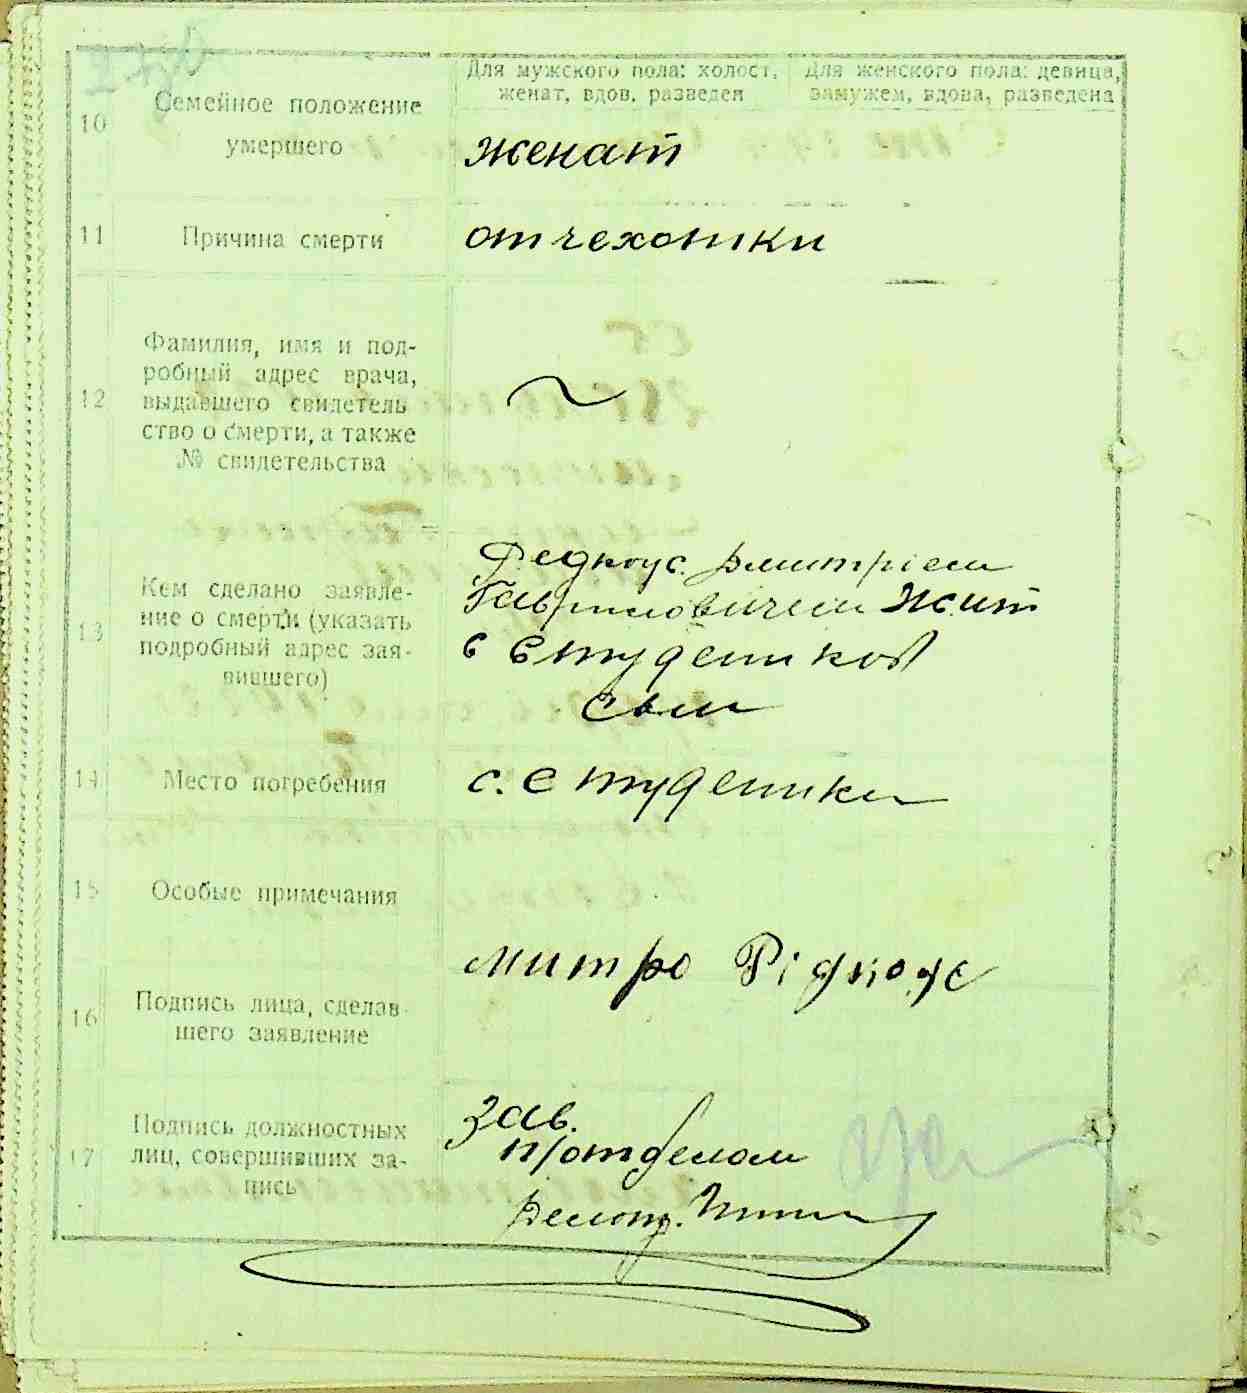 Для мужского пола: холост, женат, вдов, разведен
Для женского пола: девица, замужем, вдова, разведена
10
Семейное положение
умершего
женат
11
Причина смерти
от чехотки
12
Фамилия, имя и под-
робный адрес врача,
выдавшего свидетель
ство о смерти, а также
№ свидетельства
~
13
Кем сделано заявле-
ние о смерти (указать
подробный адрес зая-
вившего)
Редкоус Дмитрієм
Гавриловичем Жит
с Студеников
сын
14
Место погребения
с. Студеники
15
Особые примечания
16
Подпись лица, сделав-
шего заявление
Митро Рідкоус
17
Подпись должностных
лиц, совершивших за-
пись
Зав.
п/отделом